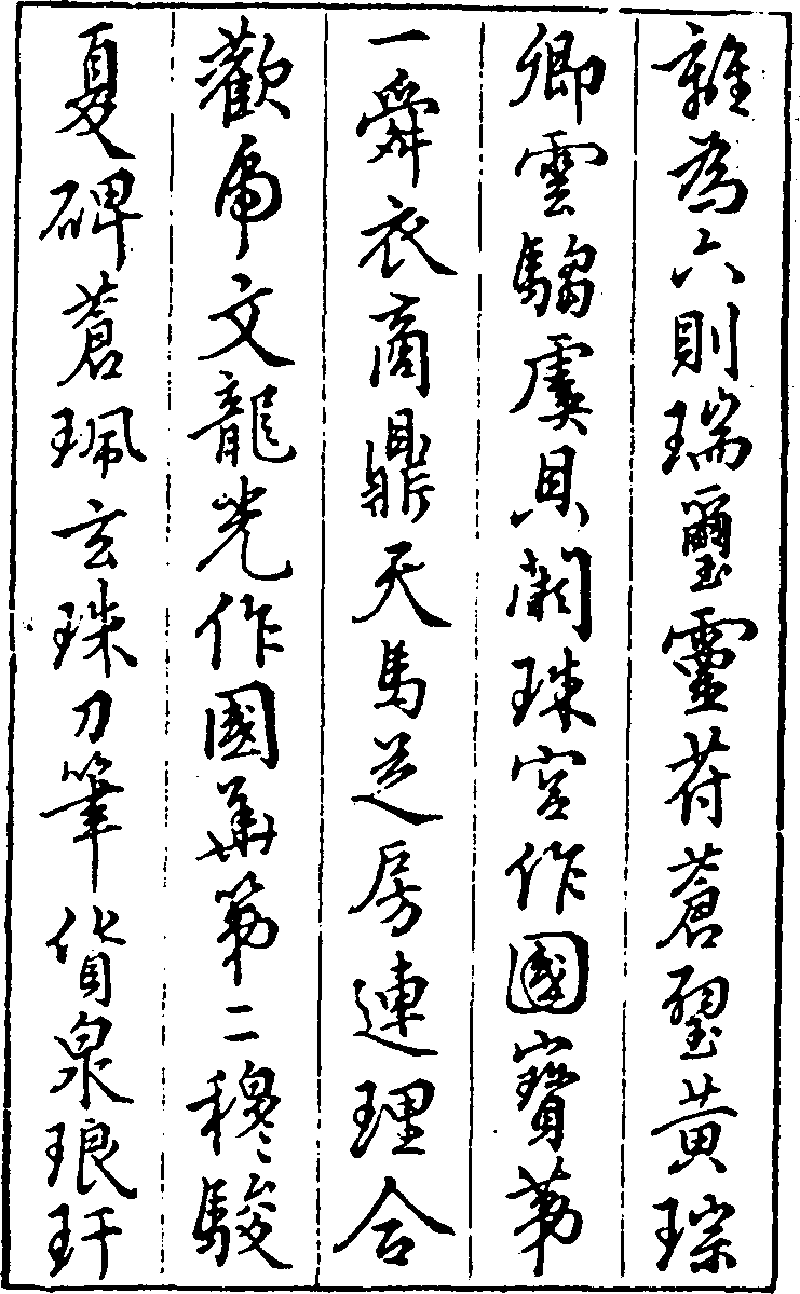 雜為六則瑞璽靈苻蒼璧黃琮
卿雲騶虞貝闕珠宮作國寶苐
一舜衣商鼎天馬芝房連理合
歡虎文龍光作國華苐二穆駿
夏碑蒼珮玄珠刀筆貨泉琅玕